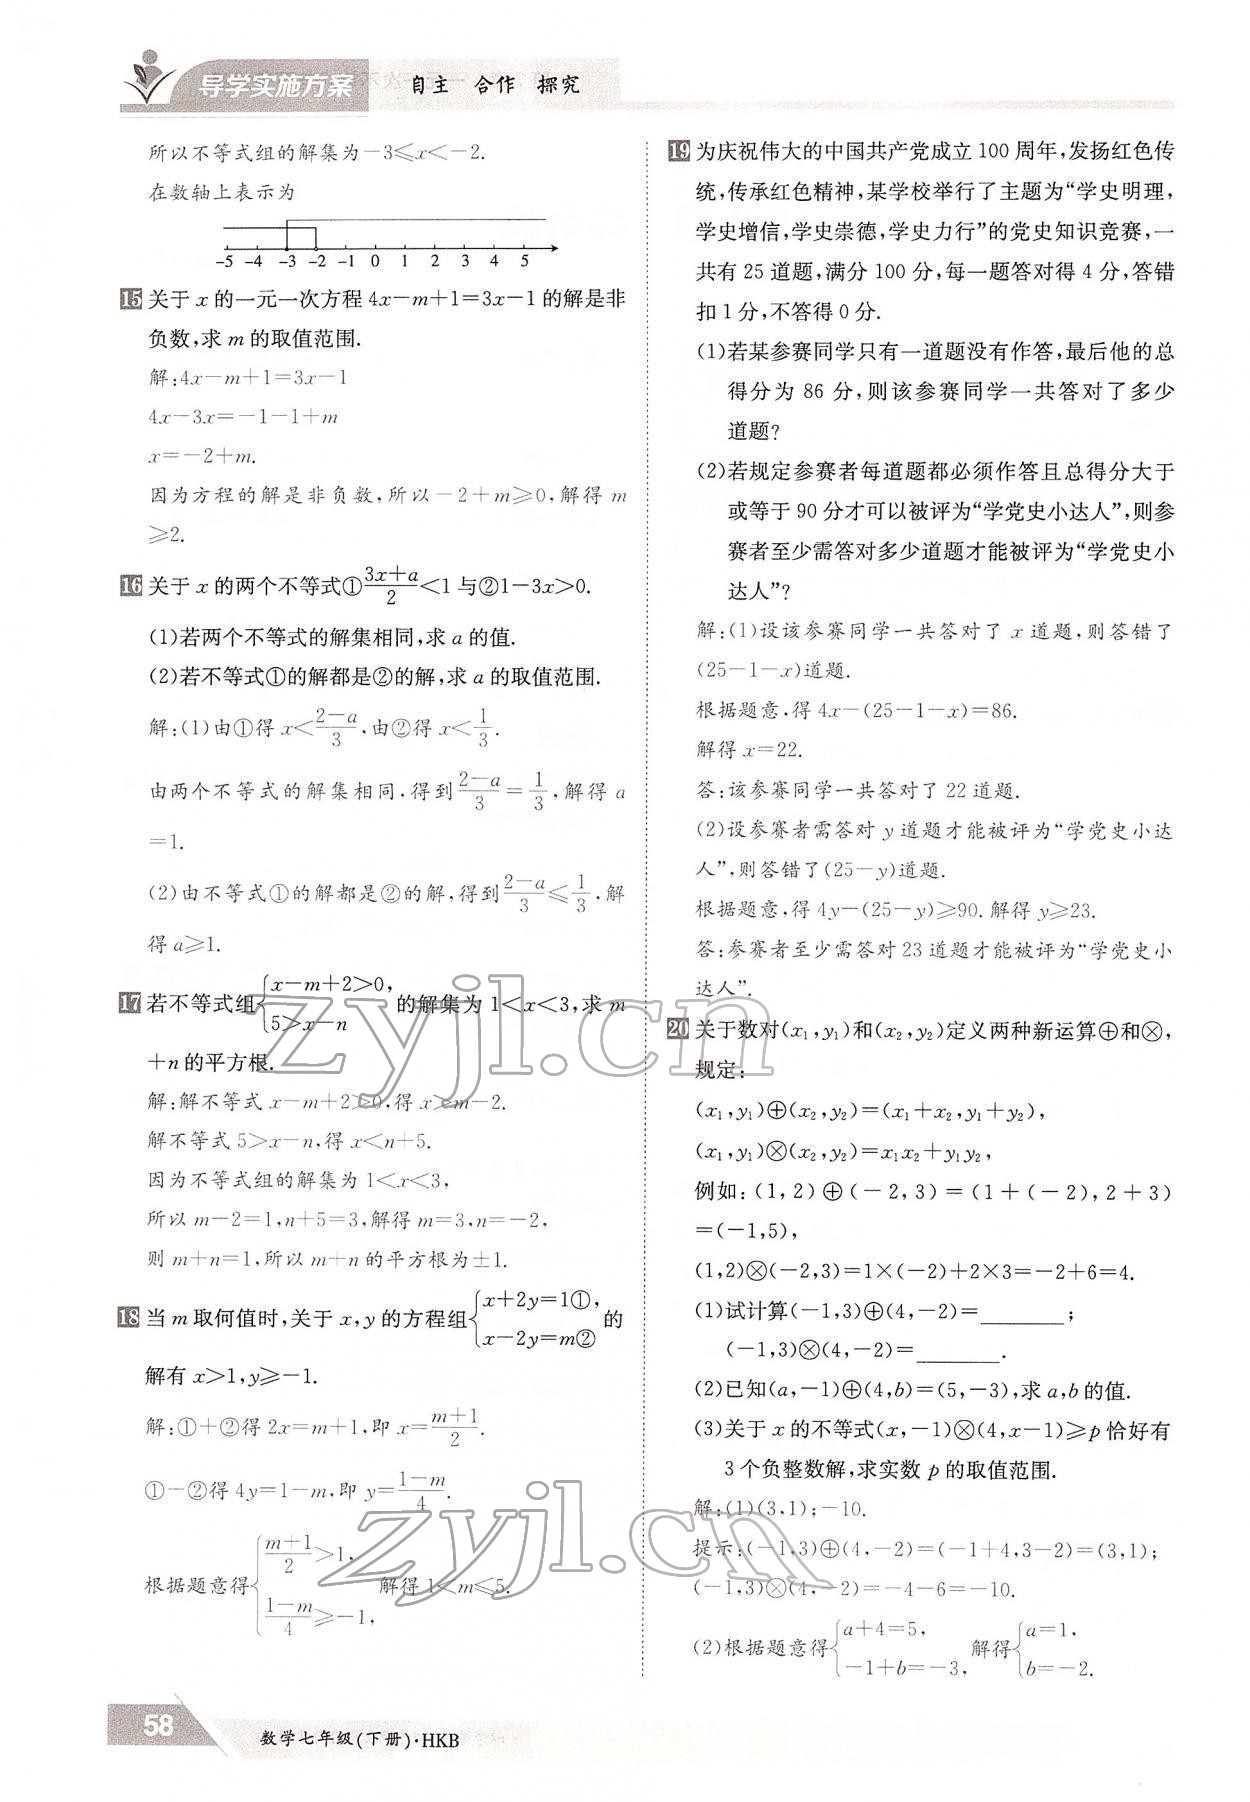 导学实施方案 自主 合作 探究
所以不等式组的解集为-3≤x<-2.
在数轴上表示为
-5 -4 -3 -2 -1 0 1 2 3 4 5
15 关于 x 的一元一次方程 4x-m+1=3x-1 的解是非
负数,求 m 的取值范围.
解:4x-m+1=3x-1
4x-3x=-1-1+m
x=-2+m.
因为方程的解是非负数,所以-2+m≥0,解得 m
≥2.
16 关于 x 的两个不等式①(3x+a)/2<1 与②1-3x>0.
(1)若两个不等式的解集相同,求 a 的值.
(2)若不等式①的解都是②的解,求 a 的取值范围.
解:(1)由①得 x<(2-a)/3,由②得 x<1/3.
由两个不等式的解集相同,得到(2-a)/3=1/3,解得 a
=1.
(2)由不等式①的解都是②的解,得到(2-a)/3≤1/3,解
得 a≥1.
17 若不等式组{x-m+2>0, 5>x-n 的解集为 1<x<3,求 m
+n 的平方根.
解:解不等式 x-m+2>0,得 x>m-2.
解不等式 5>x-n,得 x<n+5.
因为不等式组的解集为 1<x<3,
所以 m-2=1,n+5=3,解得 m=3,n=-2,
则 m+n=1,所以 m+n 的平方根为±1.
18 当 m 取何值时,关于 x,y 的方程组{x+2y=1①, x-2y=m② 的
解有 x>1,y≥-1.
解:①+②得 2x=m+1,即 x=(m+1)/2.
①-②得 4y=1-m,即 y=(1-m)/4.
根据题意得{(m+1)/2>1, (1-m)/4≥-1, 解得 1<m≤5.
19 为庆祝伟大的中国共产党成立 100 周年,发扬红色传
统,传承红色精神,某学校举行了主题为“学史明理,
学史增信,学史崇德,学史力行”的党史知识竞赛,一
共有 25 道题,满分 100 分,每一题答对得 4 分,答错
扣 1 分,不答得 0 分.
(1)若某参赛同学只有一道题没有作答,最后他的总
得分为 86 分,则该参赛同学一共答对了多少
道题?
(2)若规定参赛者每道题都必须作答且总得分大于
或等于 90 分才可以被评为“学党史小达人”,则参
赛者至少需答对多少道题才能被评为“学党史小
达人”?
解:(1)设该参赛同学一共答对了 x 道题,则答错了
(25-1-x)道题.
根据题意,得 4x-(25-1-x)=86.
解得 x=22.
答:该参赛同学一共答对了 22 道题.
(2)设参赛者需答对 y 道题才能被评为“学党史小达
人”,则答错了(25-y)道题.
根据题意,得 4y-(25-y)≥90.解得 y≥23.
答:参赛者至少需答对 23 道题才能被评为“学党史小
达人”.
20 关于数对(x₁,y₁)和(x₂,y₂)定义两种新运算⊕和⊗,
规定:
(x₁,y₁)⊕(x₂,y₂)=(x₁+x₂,y₁+y₂),
(x₁,y₁)⊗(x₂,y₂)=x₁x₂+y₁y₂,
例如:(1,2)⊕(-2,3)=(1+(-2),2+3)
=(-1,5),
(1,2)⊗(-2,3)=1×(-2)+2×3=-2+6=4.
(1)试计算(-1,3)⊕(4,-2)=________;
(-1,3)⊗(4,-2)=________.
(2)已知(a,-1)⊕(4,b)=(5,-3),求 a,b 的值.
(3)关于 x 的不等式(x,-1)⊗(4,x-1)≥p 恰好有
3 个负整数解,求实数 p 的取值范围.
解:(1)(3,1);-10.
提示:(-1,3)⊕(4,-2)=(-1+4,3-2)=(3,1);
(-1,3)⊗(4,-2)=-4-6=-10.
(2)根据题意得{a+4=5, -1+b=-3, 解得{a=1, b=-2.
58 数学七年级(下册)·HKB
zyjl.cn
zyjl.cn